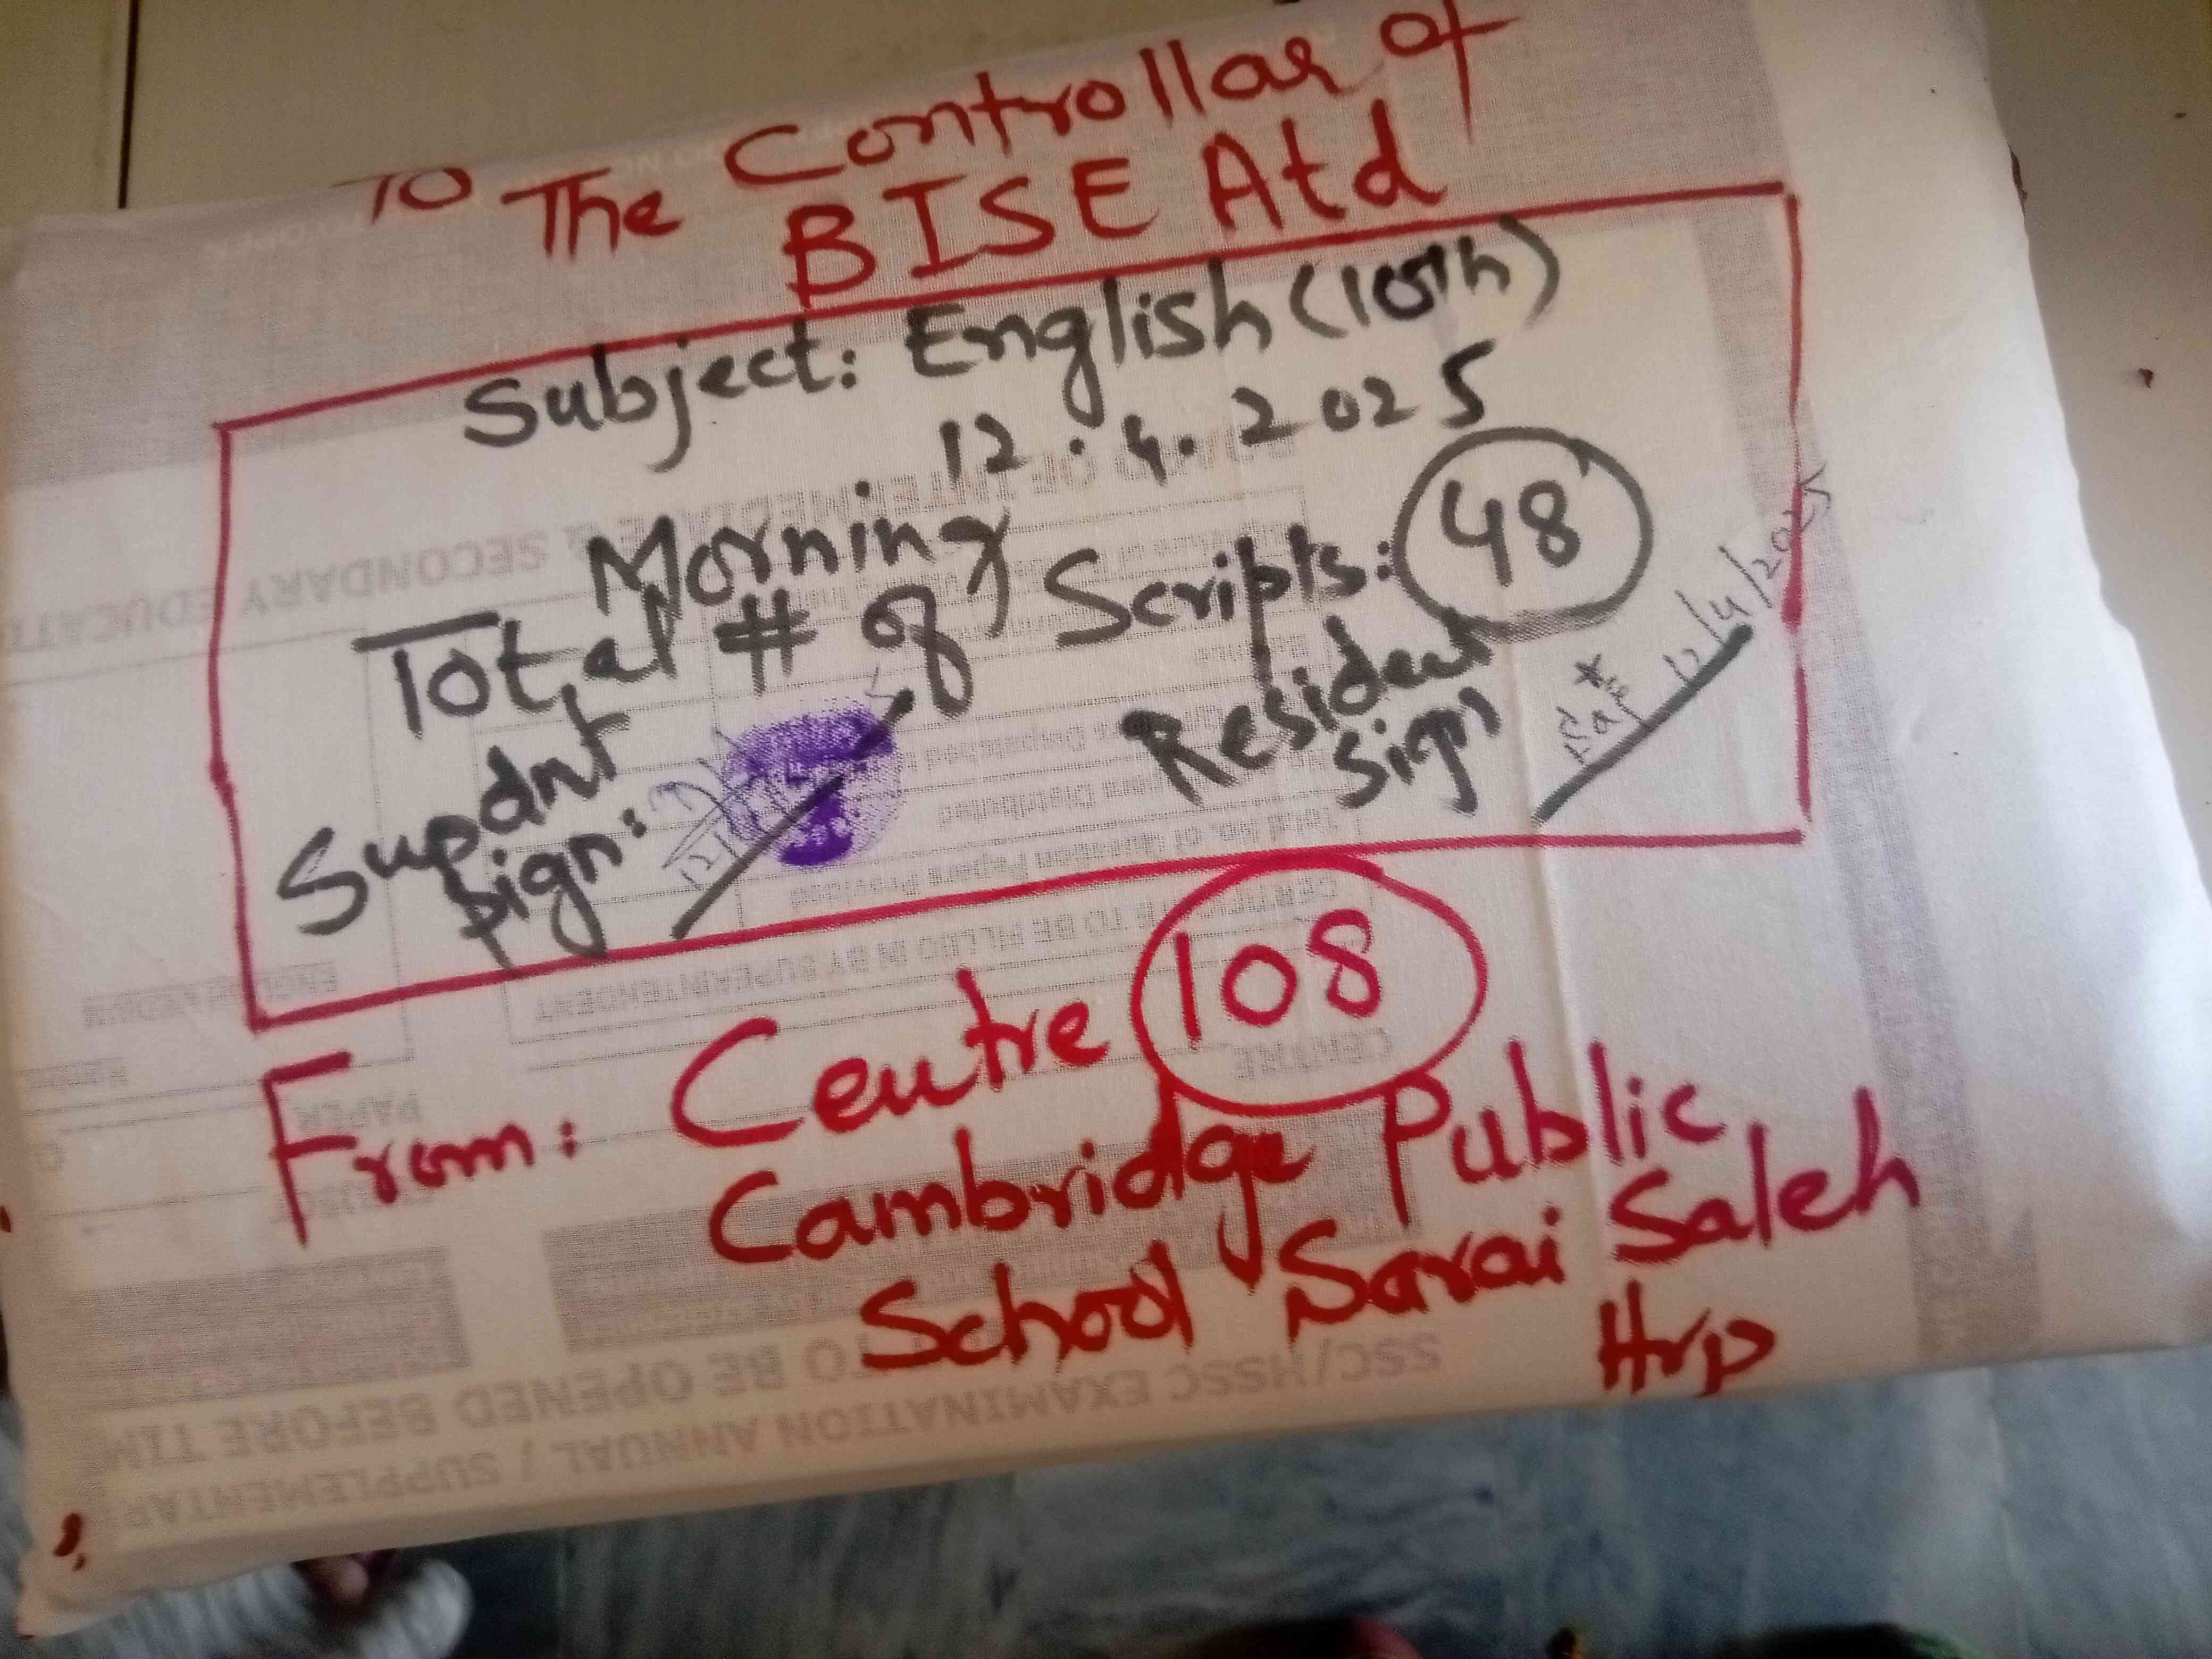 To The Controllar of
BISE Atd
Subject: English (10th)
12.4.2025
Morning
Total # of Scripts: 48
Supdnt
Sign:
Resident
Sign
12/4/2025
From: Centre 108
Cambridge Public
School Sarai Saleh
Hrp
BOARD OF INTERMEDIATE & SECONDARY EDUCATI
Total No. of Question Papers Provided
CERTIFICATE TO BE FILLED IN BY SUPERINTENDENT
CENTRE
PAPER
TO BE OPENED BEFORE TIM
SSC/HSSC EXAMINATION ANNUAL / SUPPLEMENTAR